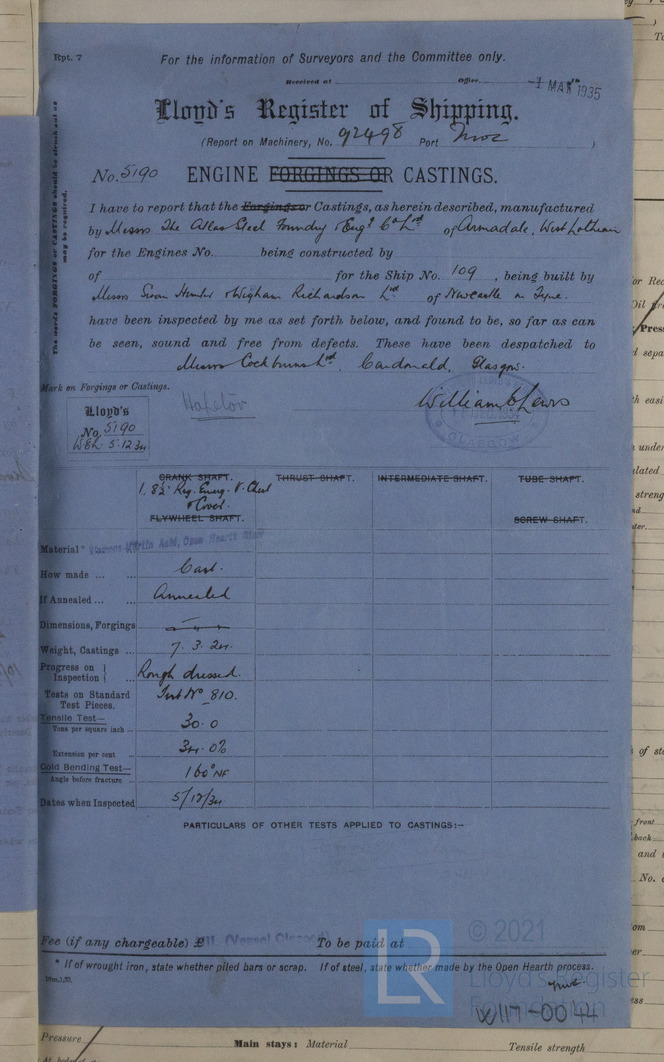 Rpt. 7
For the information of Surveyors and the Committee only.
Received at Office
-1 MAR 1935
Lloyd's Register of Shipping.
(Report on Machinery, No. 92498 Port Nwc )
No. 5190 ENGINE FORGINGS OR CASTINGS.
The words FORGINGS or CASTINGS should be struck out as may be required.
I have to report that the Forgings or Castings, as herein described, manufactured
by Messrs The Atlas Steel Foundry & Engg Co Ltd of Armadale, West Lothian
for the Engines No. being constructed by
of for the Ship No. 109, being built by
Messrs Swan Hunter & Wigham Richardson Ltd of Newcastle on Tyne.
have been inspected by me as set forth below, and found to be, so far as can
be seen, sound and free from defects. These have been despatched to
Messrs Cockburns Ltd, Cardonald, Glasgow.
Mark on Forgings or Castings.
Lloyd's
No. 5190
5.12.34
William Lewis
GLASGOW
CRANK SHAFT. THRUST SHAFT. INTERMEDIATE SHAFT. TUBE SHAFT.
1, 8½" Reg. Emerg. V. Chest
& Cover.
FLYWHEEL SHAFT. SCREW SHAFT.
Material * Siemens Martin Acid, Open Hearth Steel
How made ... ... Cast.
If Annealed ... ... Annealed
Dimensions, Forgings
Weight, Castings ... 7. 3. 24.
Progress on Inspection ... Rough dressed.
Tests on Standard Test Pieces. Test No 810.
Tensile Test—
Tons per square inch 30.0
Extension per cent 34.0%
Cold Bending Test—
Angle before fracture 180° NF
Dates when Inspected 5/12/34
PARTICULARS OF OTHER TESTS APPLIED TO CASTINGS:—
Fee (if any chargeable) £ To be paid at
* If of wrought iron, state whether piled bars or scrap. If of steel, state whether made by the Open Hearth process.
LR
© 2021
Lloyd's Register
Foundation
W117-0044
Pressure
Main stays: Material
Tensile strength